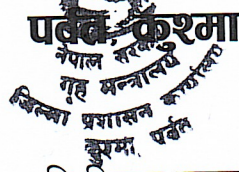 पर्बत, कुश्मा
नेपाल सरकार
गृह मन्त्रालय
जिल्ला प्रशासन कार्यालय
कुश्मा, पर्वत